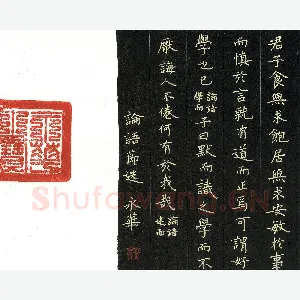 君子食無求飽居無求安敏於事
而慎於言就有道而正焉可謂好
學也已論語學而子曰默而識學而不
厭誨人不倦何有於我哉論語述而
論語節選永華
Shufawang.CN